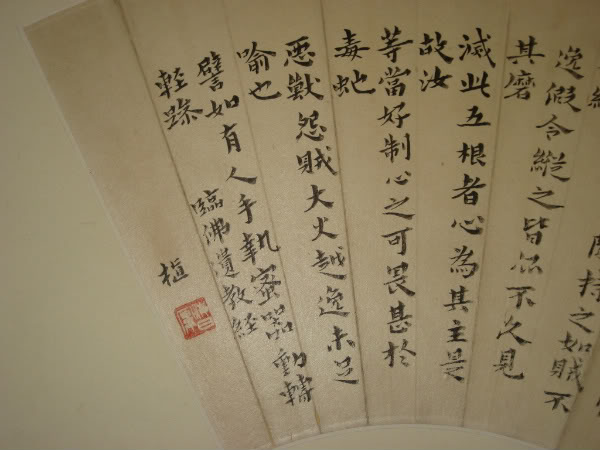 持之如賊不
縱
逸假令縱之皆亦不久見
其磨
滅此五根者心為其主是
故汝
等當好制心之可畏甚於
毒虵
惡獸怨賊大火越逸未足
喻也
譬如有人手執蜜器動轉
輕躁
臨佛遺教經